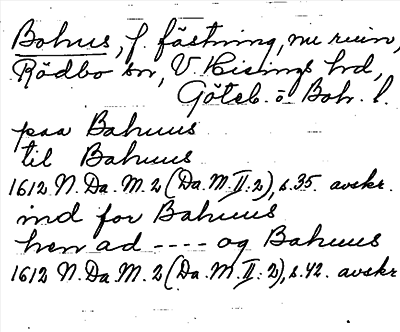 Bohus, f. fästning, nu ruin,
Rödbo sn, V. Hisings hd,
Göteb. o. Boh. l.
paa Bahuus
til Bahuus
1612 N. Da. M. 2 (Da. M. II: 2), s. 35. avskr.
ind for Bahuus
hen ad ---- og Bahuus
1612 N. Da. M. 2 (Da. M. II: 2), s. 42. avskr